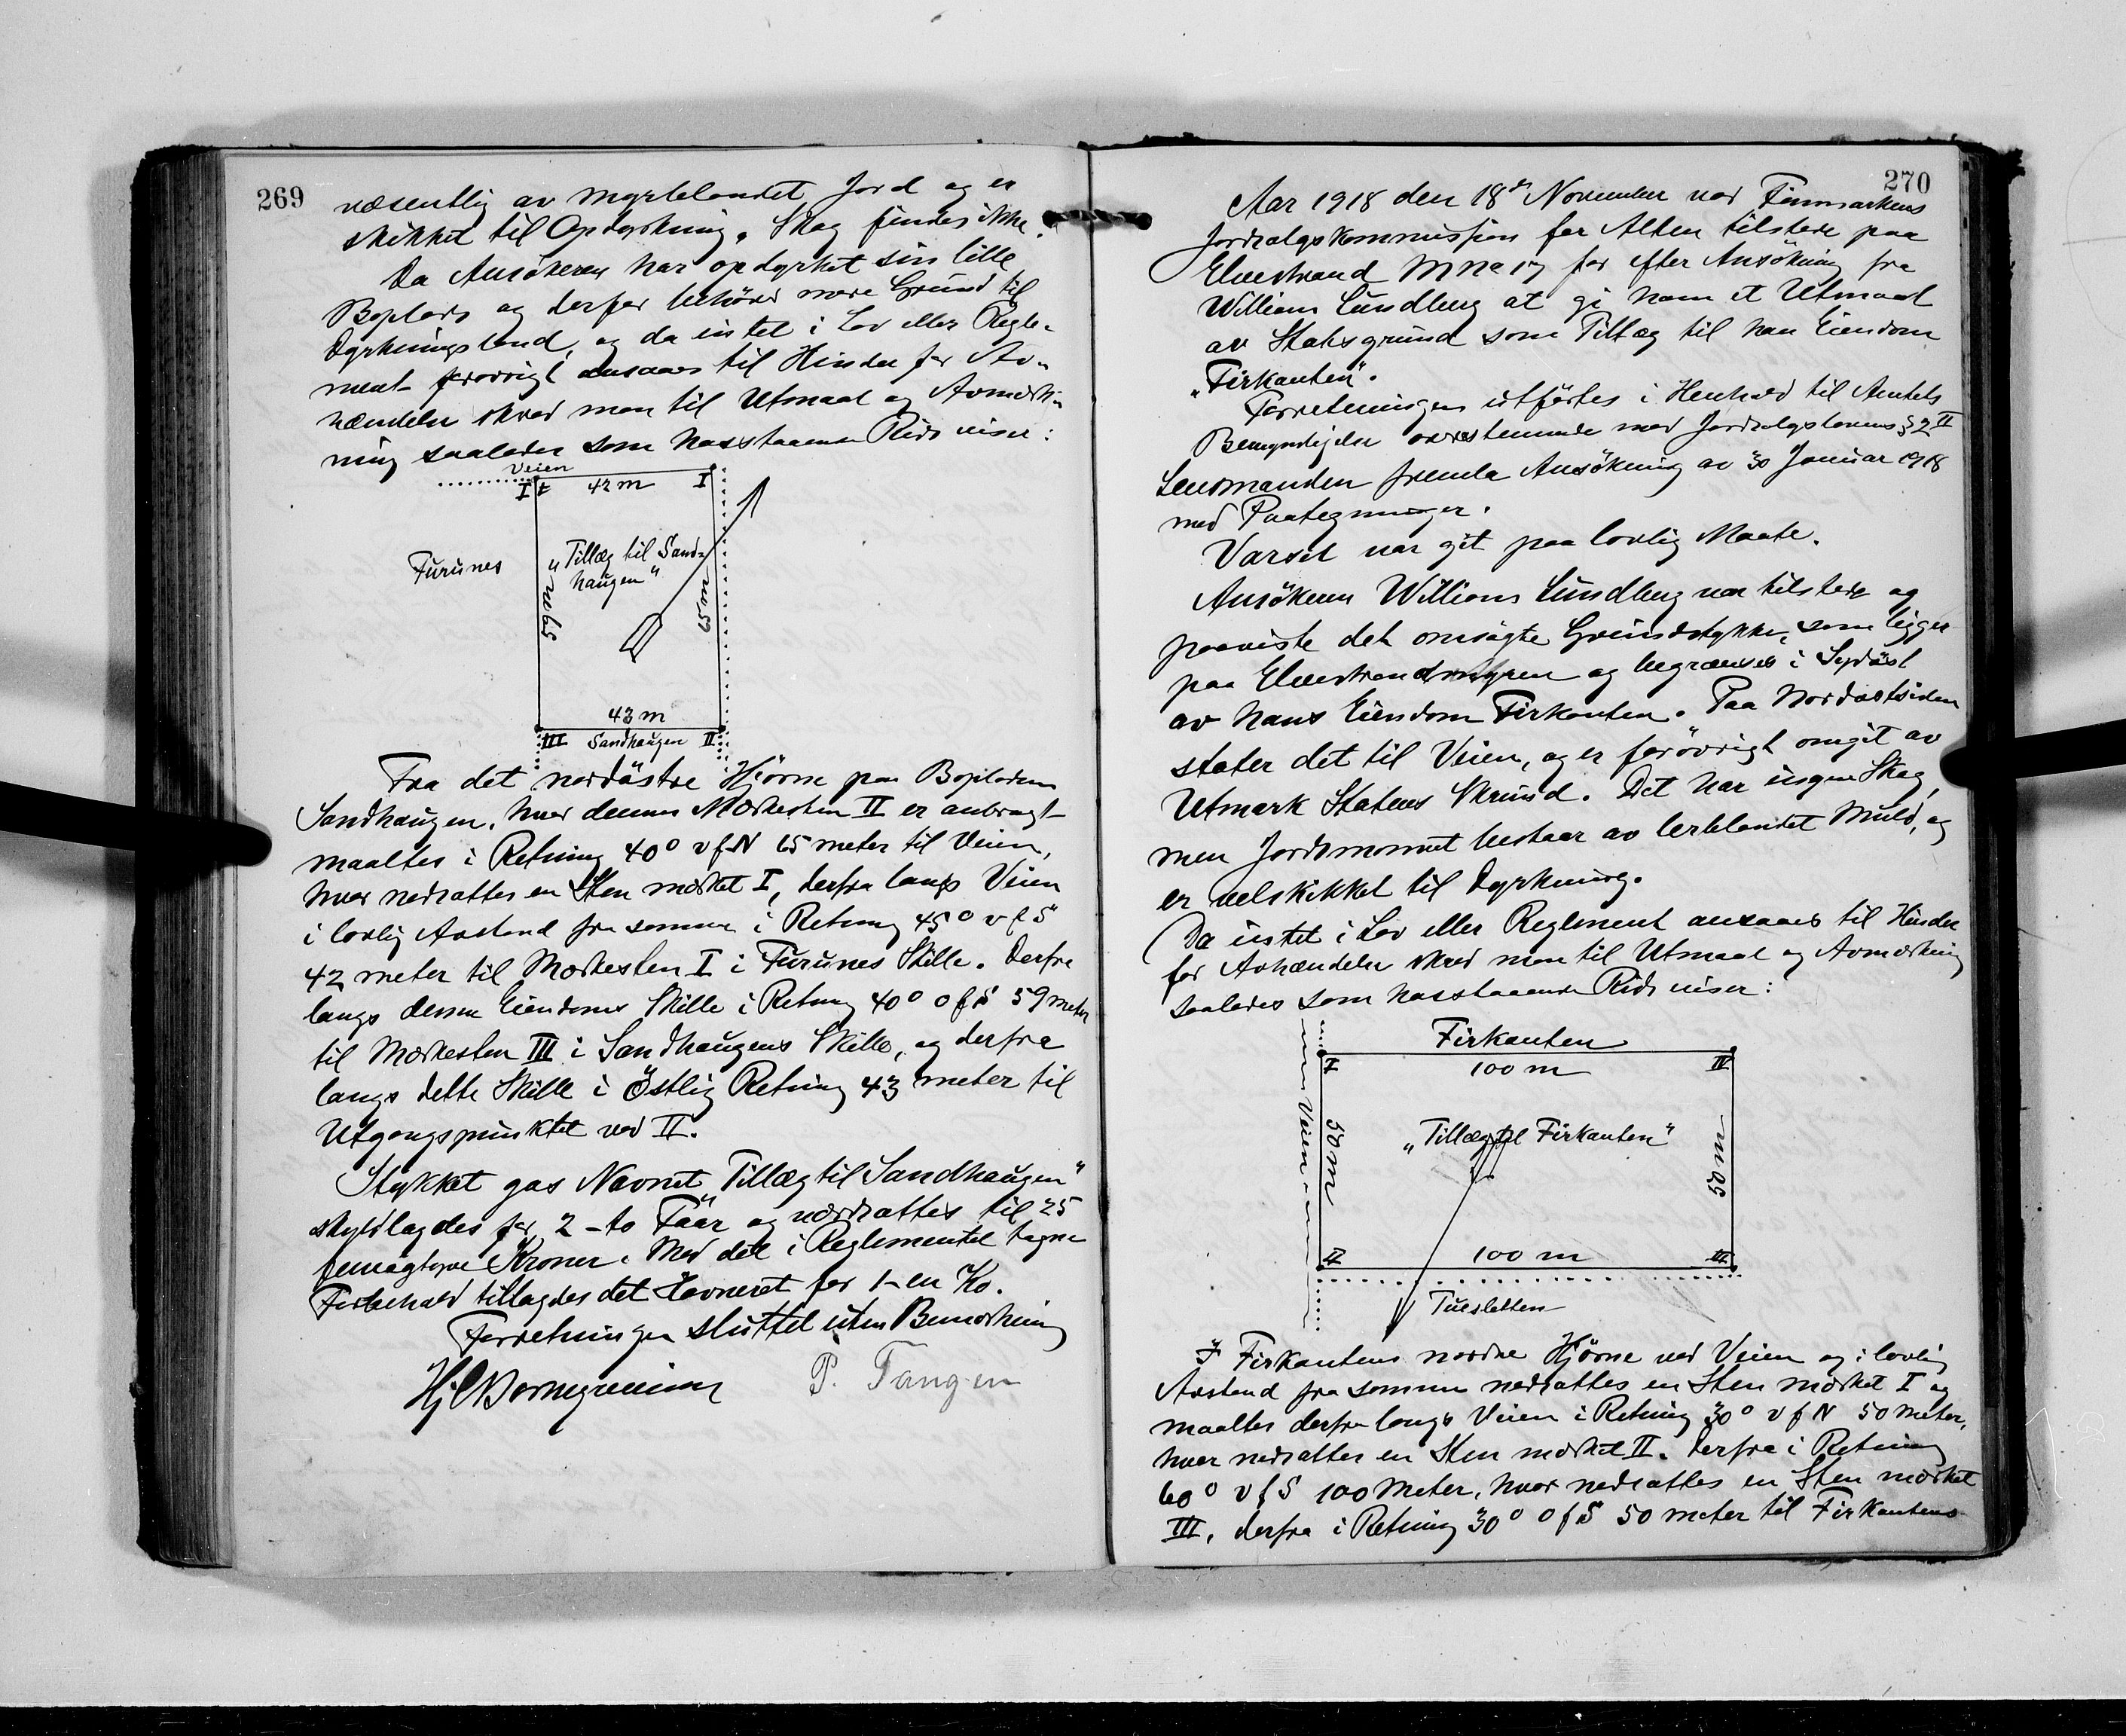 269
væsentlig av myrblandet Jord og er
skikket til Opdyrkning. Skog findes ikke.
Da Ansökeren har opdyrket sin lille
Boplads og derfor behöver mere Grund til
Dyrkningsland, og da intet i Lov eller Regle-
ment forövrigt ansaaes til Hinder for Av-
hændelse skred man til Utmaal og Avmerk-
ning saaledes som hosstaaende Rids viser:
Veien
I
42 m
I
Furunes
"Tillæg til Sand-
haugen"
59 m
65 m
43 m
III
Sandhaugen
II
Fra det nordöstre Hjörne paa Bopladsen
Sandhaugen, hvor dennes Merkesten II er anbragt
maaltes i Retning 40° v f N 65 meter til Veien,
hvor nedsattes en Sten merket I, derfra langs Veien
i lovlig Avstand fra samme i Retning 45° v f S
42 meter til Merkesten I i Furunes Skille. Derfra
langs denne Eiendoms Skille i Retning 40° o f S 59 meter
til Merkesten III i Sandhaugens Skille, og derfra
langs dette Skille i Östlig Retning 43 meter til
Utgangspunktet ved II.
Stykket gas Navnet "Tillæg til Sandhaugen"
skyldlagdes for 2 - to Øår og værdsattes til 25
femogtyve Kroner. Med det i Reglementet tagne
Forbehold tillagdes det Havneret for 1 - en Ko.
Forretningen sluttet uten Bemerkning
P. Tangen
270
Aar 1918 den 18de November var Finmarkens
Jordsalgskommission for Alten tilstede paa
Elvestrand M No 17 for efter Ansökning fra
William Lundberg at gi ham et Utmaal
av Statsgrund som Tillæg til han Eiendom
"Firkanten".
Forretningen utförtes i Henhold til Amtets
Bemyndigelse overensstemmende med Jordsalgslovens § 2 II
Lensmanden fremla Ansökning av 30 Januar 1918
med Paategninger.
Varsel var git paa lovlig Maate.
Ansökeren William Lundberg var tilstede og
paaviste det omsögte Grundstykke, som ligger
paa Elvestrandmyren og begrænses i Sydöst
av hans Eiendom Firkanten. Paa Nordostsiden
stöter det til Veien, og er forövrigt omgit av
Utmark Statens Grund. Det har ingen Skog,
men Jordsmonnet bestaar av lerblandet Muld, og
er velskikket til Dyrkning.
Da intet i Lov eller Reglement ansaaes til Hinder
for Avhændelse skred man til Utmaal og Avmerkning
saaledes som hosstaaende Rids viser:
Firkanten
I
100 m
IV
Veien
50 m
"Tillæg til Firkanten"
50 m
II
100 m
III
Tuesletten
I Firkantens nordre Hjörne ved Veien og i lovlig
Avstand fra samme nedsattes en Sten merket I og
maaltes derfra langs Veien i Retning 30° v f N 50 meter,
hvor nedsattes en Sten merket II. Derfra i Retning
60° v f S 100 meter, hvor nedsattes en Sten merket
III, derfra i Retning 30° o f S 50 meter til Firkantens